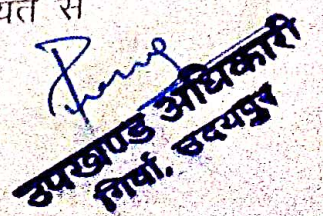 यत स
उपखण्ड अधिकारी
गिर्वा, उदयपुर